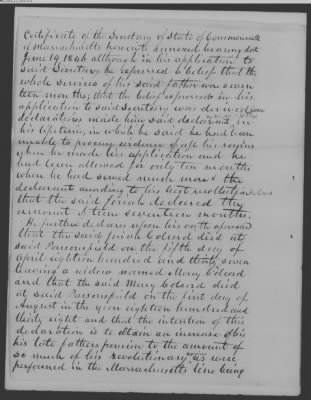 Certificate of the Secretary of State of Commonwealth
of Massachusetts hereunto annexed bearing date
June 19 1846 although in his application to
said Secretary he expressed a belief that the
whole service of his said father was seven
teen months; that the belief expressed in his
application to said Secretary was derived from
declarations made him said declarant by
his lifetime, in which he said he had been
unable to procure evidence of all his service
when he made his application and he
had been allowed for only ten months
when he had served much more & the
declarant according to his best recollection
that the said Josiah declared the
amount of time seventeen months.
He further declares upon his oath aforesaid
that the said Josiah Colcord died at
said Parsonsfield on the fifth day of
April eighteen hundred and thirty seven
leaving a widow named Mary Colcord
and that the said Mary Colcord died
at said Parsonsfield on the first day of
August in the year eighteen hundred and
thirty eight and that the intention of this
declaration is to obtain an increase of
his late fathers pension to the amount of
so much of his revolutionary services as were
performed in the Massachusetts line being